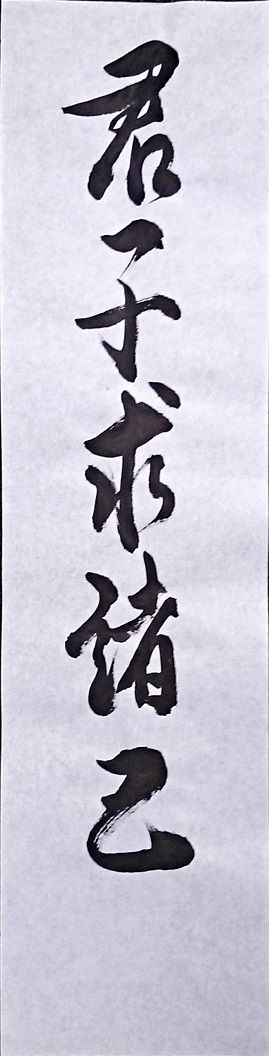 君子求諸己